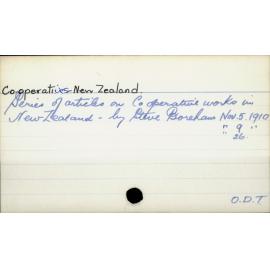 Cooperatives New Zealand.
Series of articles on Cooperative works in
New Zealand - by Steve Boreham Nov. 5. 1910
" 9 "
" 26.
O.D.T.